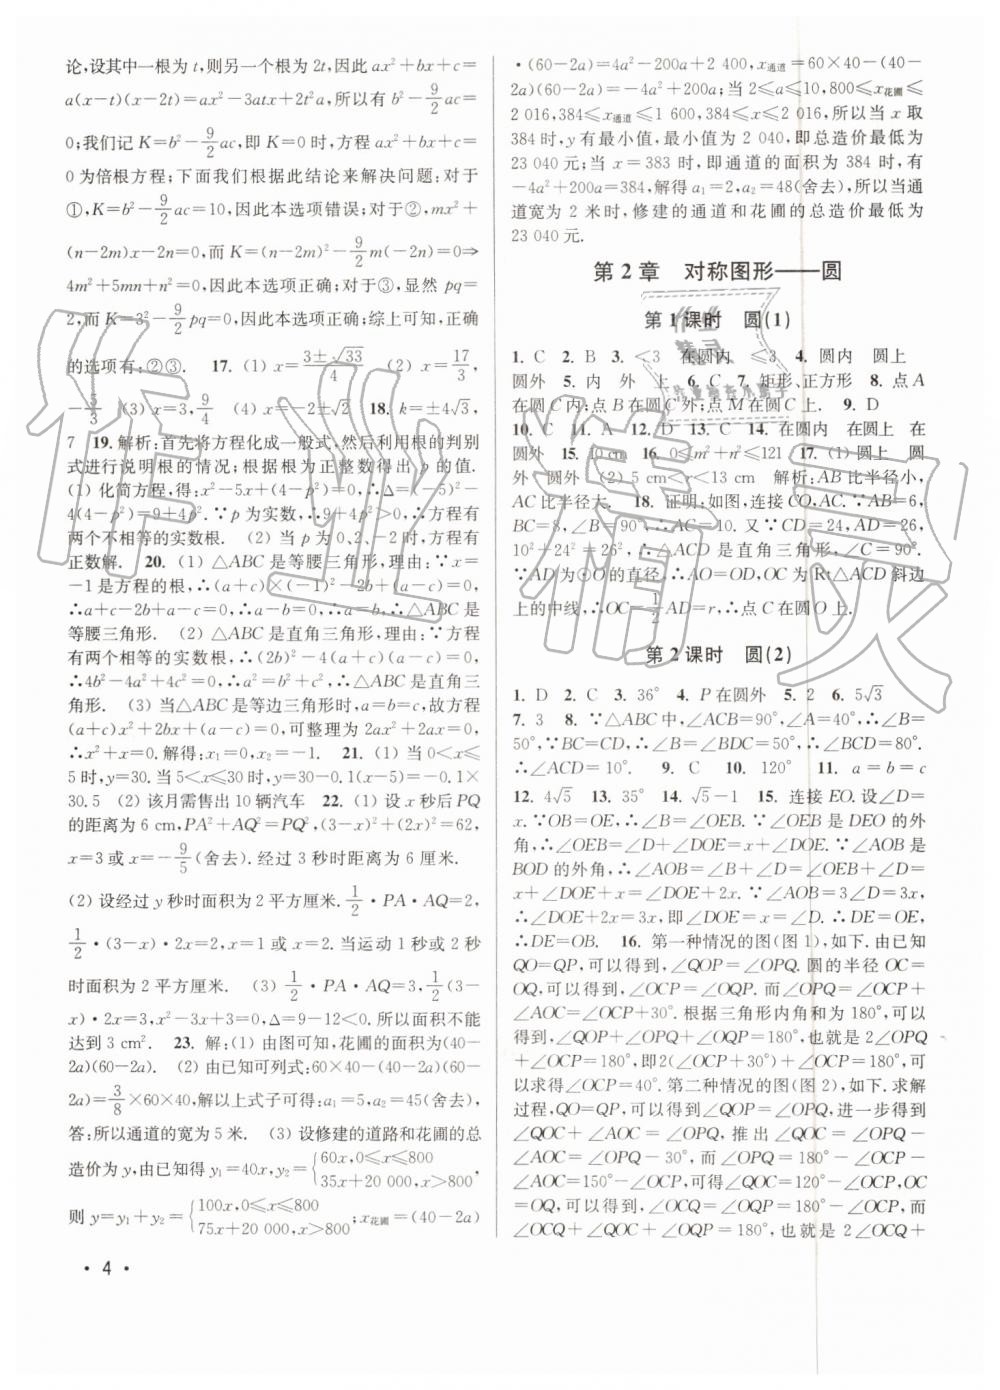 论,设其中一根为 t,则另一个根为 2t,因此 ax²+bx+c=
a(x-t)(x-2t)=ax²-3atx+2t²a,所以有 b²-9/2ac=
0;我们记 K=b²-9/2ac,即 K=0 时,方程 ax²+bx+c=
0 为倍根方程;下面我们根据此结论来解决问题:对于
①,K=b²-9/2ac=10,因此本选项错误;对于②,mx²+
(n-2m)x-2n=0,而 K=(n-2m)²-9/2m(-2n)=0⇒
4m²+5mn+n²=0,因此本选项正确;对于③,显然 pq=
2,而 K=3²-9/2pq=0,因此本选项正确;综上可知,正确
的选项有:②③. 17. (1) x=(3±√33)/4 (2) x=17/3,
-5/3 (3) x=3,9/4 (4) x=-2±√2 18. k=±4√3,
7 19. 解析:首先将方程化成一般式,然后利用根的判别
式进行说明根的情况;根据根为正整数得出 p 的值.
(1) 化简方程,得:x²-5x+(4-p²)=0.∴Δ=(-5)²-
4(4-p²)=9+4p².∵p 为实数,∴9+4p²>0,∴方程有
两个不相等的实数根. (2) 当 p 为 0、2、-2 时,方程有
正数解. 20. (1) △ABC 是等腰三角形,理由:∵x=
-1 是方程的根,∴(a+c)×(-1)²-2b+(a-c)=0,
∴a+c-2b+a-c=0,∴a-b=0,∴a=b,∴△ABC 是
等腰三角形. (2) △ABC 是直角三角形,理由:∵方程
有两个相等的实数根,∴(2b)²-4(a+c)(a-c)=0,
∴4b²-4a²+4c²=0,∴a²=b²+c²,∴△ABC 是直角三
角形. (3) 当△ABC 是等边三角形时,a=b=c,故方程
(a+c)x²+2bx+(a-c)=0,可整理为 2ax²+2ax=0,
∴x²+x=0.解得:x₁=0,x₂=-1. 21. (1) 当 0<x≤
5 时,y=30. 当 5<x≤30 时,y=30-0.1(x-5)=-0.1x+
30.5 (2) 该月需售出 10 辆汽车 22. (1) 设 x 秒后 PQ
的距离为 6 cm,PA²+AQ²=PQ²,(3-x)²+(2x)²=62,
x=3 或 x=-9/5(舍去).经过 3 秒时距离为 6 厘米.
(2) 设经过 y 秒时面积为 2 平方厘米.1/2·PA·AQ=2,
1/2·(3-x)·2x=2,x=1 或 x=2.当运动 1 秒或 2 秒
时面积为 2 平方厘米. (3) 1/2·PA·AQ=3,1/2(3-
x)·2x=3,x²-3x+3=0,Δ=9-12<0.所以面积不能
达到 3 cm². 23. 解:(1) 由图可知,花圃的面积为(40-
2a)(60-2a). (2) 由已知可列式:60×40-(40-2a)(60-
2a)=3/8×60×40,解以上式子可得:a₁=5,a₂=45(舍去),
答:所以通道的宽为 5 米. (3) 设修建的道路和花圃的总
造价为 y,由已知得 y₁=40x,y₂={60x,0≤x≤800
35x+20 000,x>800,
则 y=y₁+y₂={100x,0≤x≤800
75x+20 000,x>800;x花圃=(40-2a)
·(60-2a)=4a²-200a+2 400,x通道=60×40-(40-
2a)(60-2a)=-4a²+200a;当 2≤a≤10,800≤x花圃≤
2 016,384≤x通道≤1 600,384≤x≤2 016,所以当 x 取
384 时,y 有最小值,最小值为 2 040,即总造价最低为
23 040 元;当 x=383 时,即通道的面积为 384 时,有
-4a²+200a=384,解得 a₁=2,a₂=48(舍去),所以当通
道宽为 2 米时,修建的通道和花圃的总造价最低为
23 040 元.
第 2 章 对称图形——圆
第 1 课时 圆(1)
1. C 2. B 3. <3 在圆内 ≤3 4. 圆内 圆上
圆外 5. 内 外 上 6. C 7. 矩形、正方形 8. 点 A
在圆 C 内;点 B 在圆 C 外;点 M 在圆 C 上. 9. D
10. C 11. A 12. D 13. A 14. 在圆内 在圆上 在
圆外 15. 10 cm 16. 0≤m²+n²≤121 17. (1) 圆上 圆
外 圆外 (2) 5 cm<r<13 cm 解析:AB 比半径小,
AC 比半径大. 18. 证明:如图,连接 CO,AC.∵AB=6,
BC=8,∠B=90°,∴AC=10.又∵CD=24,AD=26,
10²+24²=26²,∴△ACD 是直角三角形,∠C=90°.
∵AD 为⊙O 的直径,∴AO=OD,OC 为 Rt△ACD 斜边
上的中线,∴OC=1/2AD=r,∴点 C 在圆 O 上.
第 2 课时 圆(2)
1. D 2. C 3. 36° 4. P 在圆外 5. 2 6. 5√3
7. 3 8. ∵△ABC 中,∠ACB=90°,∠A=40°,∴∠B=
50°,∵BC=CD,∴∠B=∠BDC=50°,∴∠BCD=80°.
∴∠ACD=10°. 9. C 10. 120° 11. a=b=c
12. 4√5 13. 35° 14. √5-1 15. 连接 EO.设∠D=
x.∵OB=OE,∴∠B=∠OEB.∵∠OEB 是 DEO 的外
角,∴∠OEB=∠D+∠DOE=x+∠DOE.∵∠AOB 是
BOD 的外角,∴∠AOB=∠B+∠D=∠OEB+∠D=
x+∠DOE+x=∠DOE+2x.∵∠AOB=3∠D=3x,
∴∠DOE+2x=3x,即∠DOE=x=∠D,∴DE=OE,
∴DE=OB. 16. 第一种情况的图(图 1),如下.由已知
QO=QP,可以得到,∠QOP=∠OPQ.圆的半径 OC=
OQ,可以得到,∠OCP=∠OQP.而∠OPQ=∠OCP+
∠AOC=30°+∠OCP.根据三角形内角和为 180°,可以
得到,∠QOP+∠OPQ+∠OQP=180°,也就是 2∠OPQ
+∠OCP=180°,即2(∠OCP+30°)+∠OCP=180°,可
以求得∠OCP=40°.第二种情况的图(图 2),如下.求解
过程,QO=QP,可以得到,∠QOP=∠OPQ,进一步得到
∠QOC+∠AOC=∠OPQ, 推出∠QOC=∠OPQ-
∠AOC=∠OPQ-30°, 而∠OPQ=180°-∠OCP-
∠AOC=150°-∠OCP,∠QOC=120°-∠OCP,OC
=OQ,可以得到,∠OCP=∠OQP,在△QOC 中,而
∠OCQ+∠QOC+∠OQP=180°,也就是 2∠OCP+
· 4 ·
作业精灵